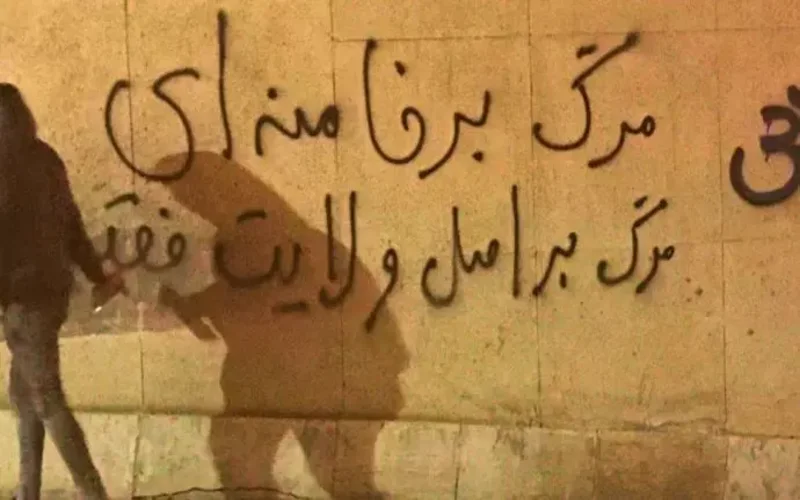 مرگ بر خامنه ای
مرگ بر اصل ولایت